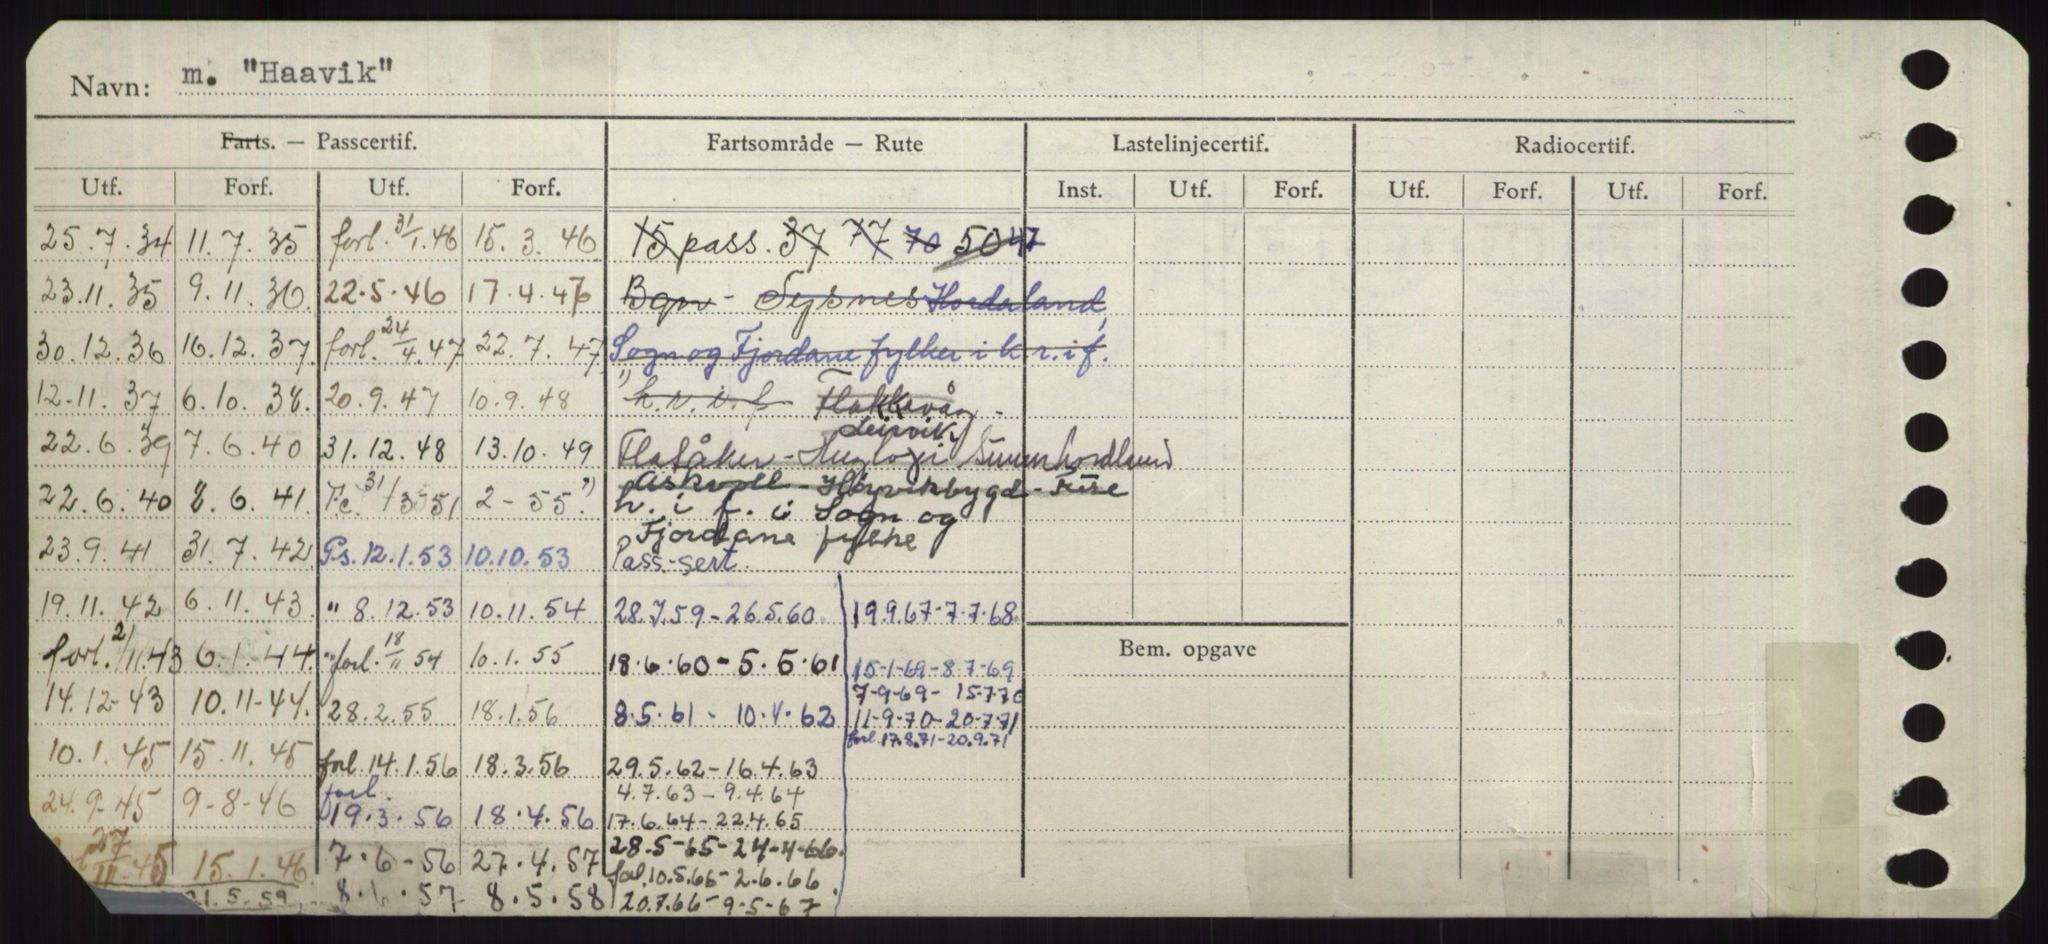 Navn: m. "Haavik"
Farts. — Passcertif. Fartsområde — Rute Lastelinjecertif. Radiocertif.
Utf. Forf. Utf. Forf. Inst. Utf. Forf. Utf. Forf. Utf. Forf.
25.7.34 11.7.35 forl. 31/1.46 15.3.46 15 pass. 37 77 70 50 47
23.11.35 9.11.36 22.5.46 17.4.47 Bgn - Sysnes Hordaland,
30.12.36 16.12.37 forl. 24/4.47 22.7.47 Sogn og Fjordane fylker i k.r.i f.
12.11.37 6.10.38. 20.9.47 10.9.48 h.r.i.f. Flakkavåg -
Leirvik
22.6.39 7.6.40 31.12.48 13.10.49 Flatåker - Huglo i Sunnhordland
Askvoll - Høyvikbygd -
22.6.40 8.6.41. Fc. 31/3-51 2-55. h. i f. i Sogn og
Fjordane fylke
23.9.41 31.7.42 Ps. 12.1.53 10.10.53 Pass-sert.
19.11.42 6.11.43. " 8.12.53 10.11.54 28.7.59 - 26.5.60 19.9.67-7.7.68
forl. 2/11.43 6.1.44. " forl. 18/11 54 10.1.55 18.6.60 - 5.5.61 15-1-69-8.7-69
7-9-69- 15-7-70
14.12-43 10.11-44. 28.2.55 18.1.56 8.5.61 - 10.4.62 11-9-70-20-7-71
forl. 17.8.71-20.9.71
10.1.45 15.11.45 forl. 14.1.56 18.3.56 29.5.62-16.4.63
24.9-45 9-8-46 forl. 19.3.56 18.4.56 4.7.63-9.4.64
17.6.64-22.4.65
27/III-45 15.1.46. 7.6-56 27.4.57 28.5-65-24-4-66.
forl. 10.5.66-2.6.66
21.5.59 8.6.57 8.5.58 20.7.66-9-5-67
Bem. opgave